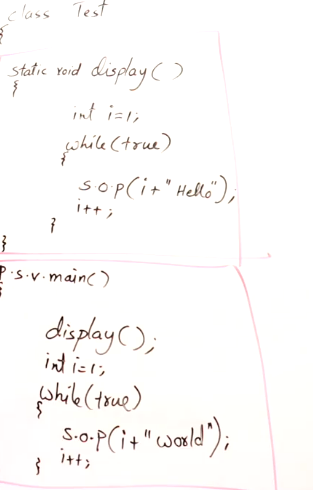 class Test
{
static void display()
{
int i=1;
while(true)
{
S.O.P(i+"Hello");
i++;
}
}
P.S.V.main()
{
display();
int i=1;
while(true)
{
S.O.P(i+"world");
i++;
}